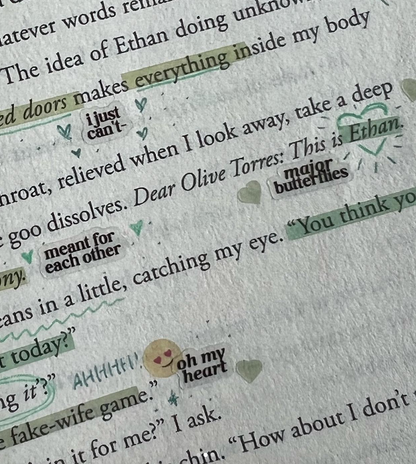 The idea of Ethan doing
ed doors makes everything inside my body
i just
can't-
hroat, relieved when I look away, take a deep
goo dissolves. Dear Olive Torres: This is Ethan.
major
butterflies
meant for
each other
ny.
eans in a little, catching my eye. "You think yo
t today?"
AHHHH!
oh my
heart
ng it'?"
e fake-wife game."
in it for me?" I ask.
chin. "How about I don't